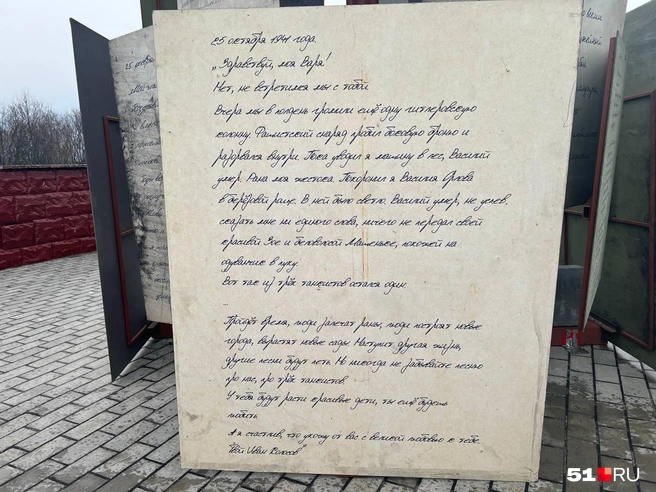 25 октября 1941 года.
„Здравствуй, моя Варя!
Нет, не встретился мы с тобой.
Вчера мы в полдень громили ещё одну гитлеровскую
колонну. Фашистский снаряд пробил боковую броню и
разорвался внутри. Пока уводил я машину в лес, Василий
умер. Рана моя жестока. Похоронил я Василия Орлова
в берёзовой роще. В ней было светло. Василий умер, не успев
сказать мне ни единого слова, ничего не передал своей
красивой Зое и беловолосой Машеньке, похожей на
одуванчик в пуху.
Вот так из трёх танкистов остался один.
...
Пройдёт время, люди залечат раны, люди построят новые
города, вырастят новые сады. Наступит другая жизнь,
другие песни будут петь. Но никогда не забывайте песню
про нас, про трёх танкистов.
У тебя будут расти красивые дети, ты ещё будешь
любить.
А я счастлив, что ухожу от вас с великой любовью к тебе.
Твой Иван Колосов"
51 RU